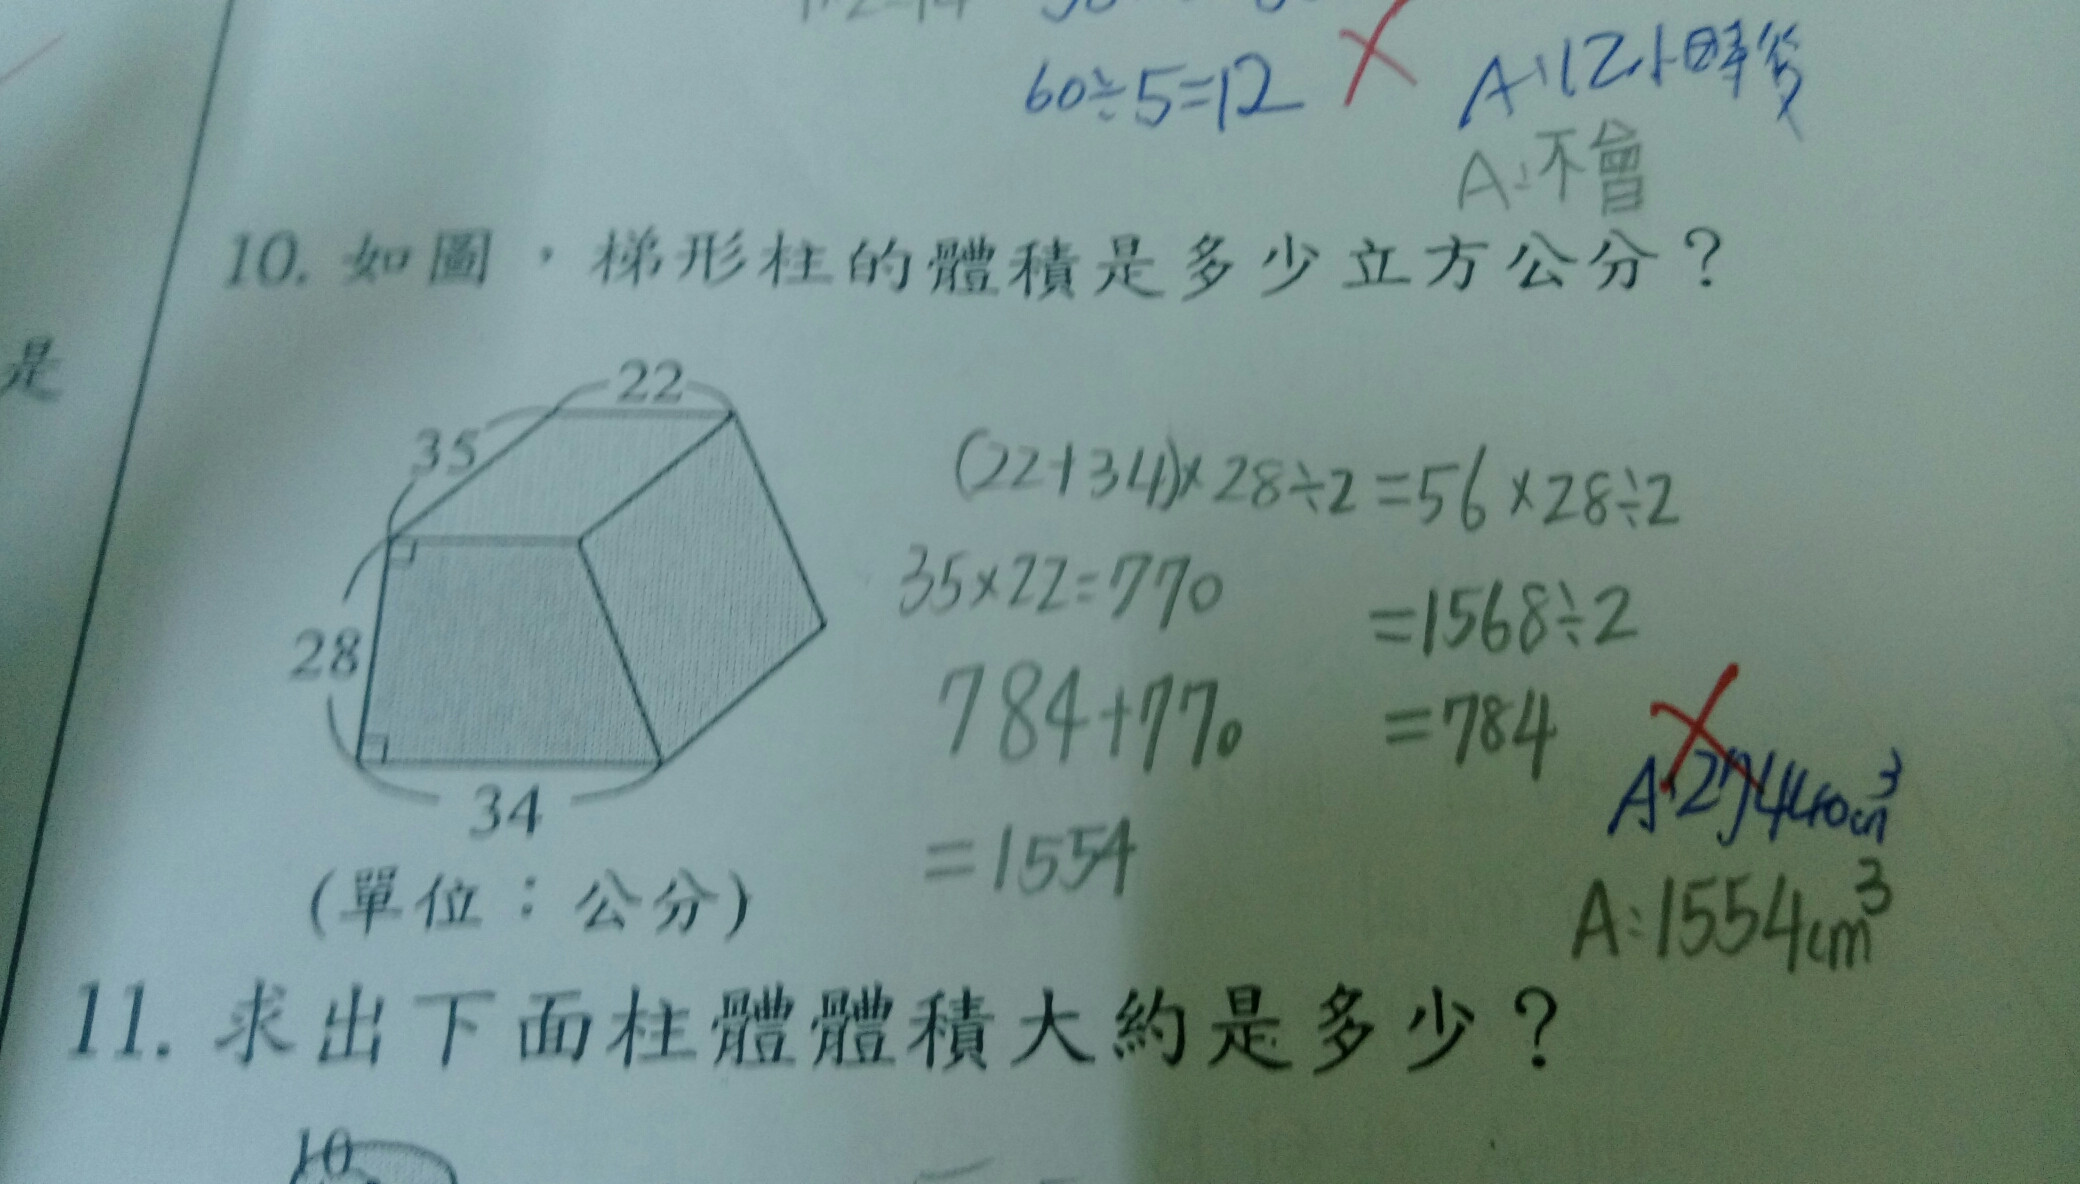 60÷5=12
A:12小時後
A:不會
10. 如圖，梯形柱的體積是多少立方公分？
22
35
28
34
(單位：公分)
(22+34)×28÷2=56×28÷2
35×22=770
=1568÷2
784+770
=784
=1554
A:27440cm³
A:1554cm³
是
11. 求出下面柱體體積大約是多少？
10